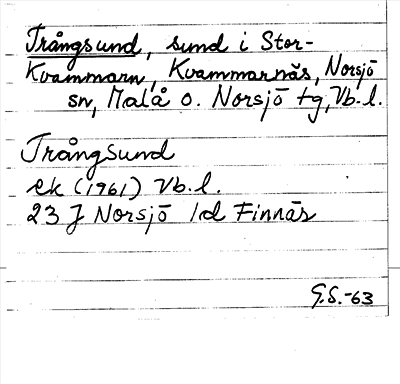 Trångsund, sund i Stor-
Kvammarn, Kvammarnäs, Norsjö
sn, Malå o. Norsjö tg, Vb. l.
Trångsund
ek (1961) Vb. l.
23 J Norsjö 1d Finnäs
G.S.-63